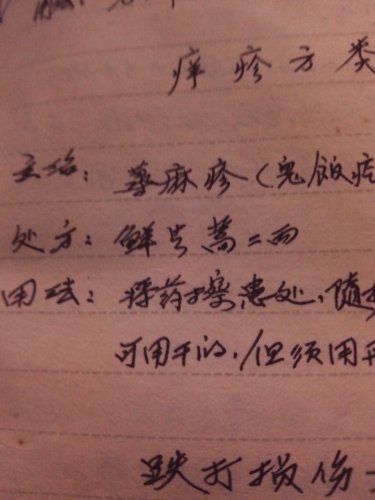 痒疹方类
主治：荨麻疹（鬼饭疙
处方：鲜青蒿二两
用法：将药搽患处、随
可用干的，但须用开
跌打损伤